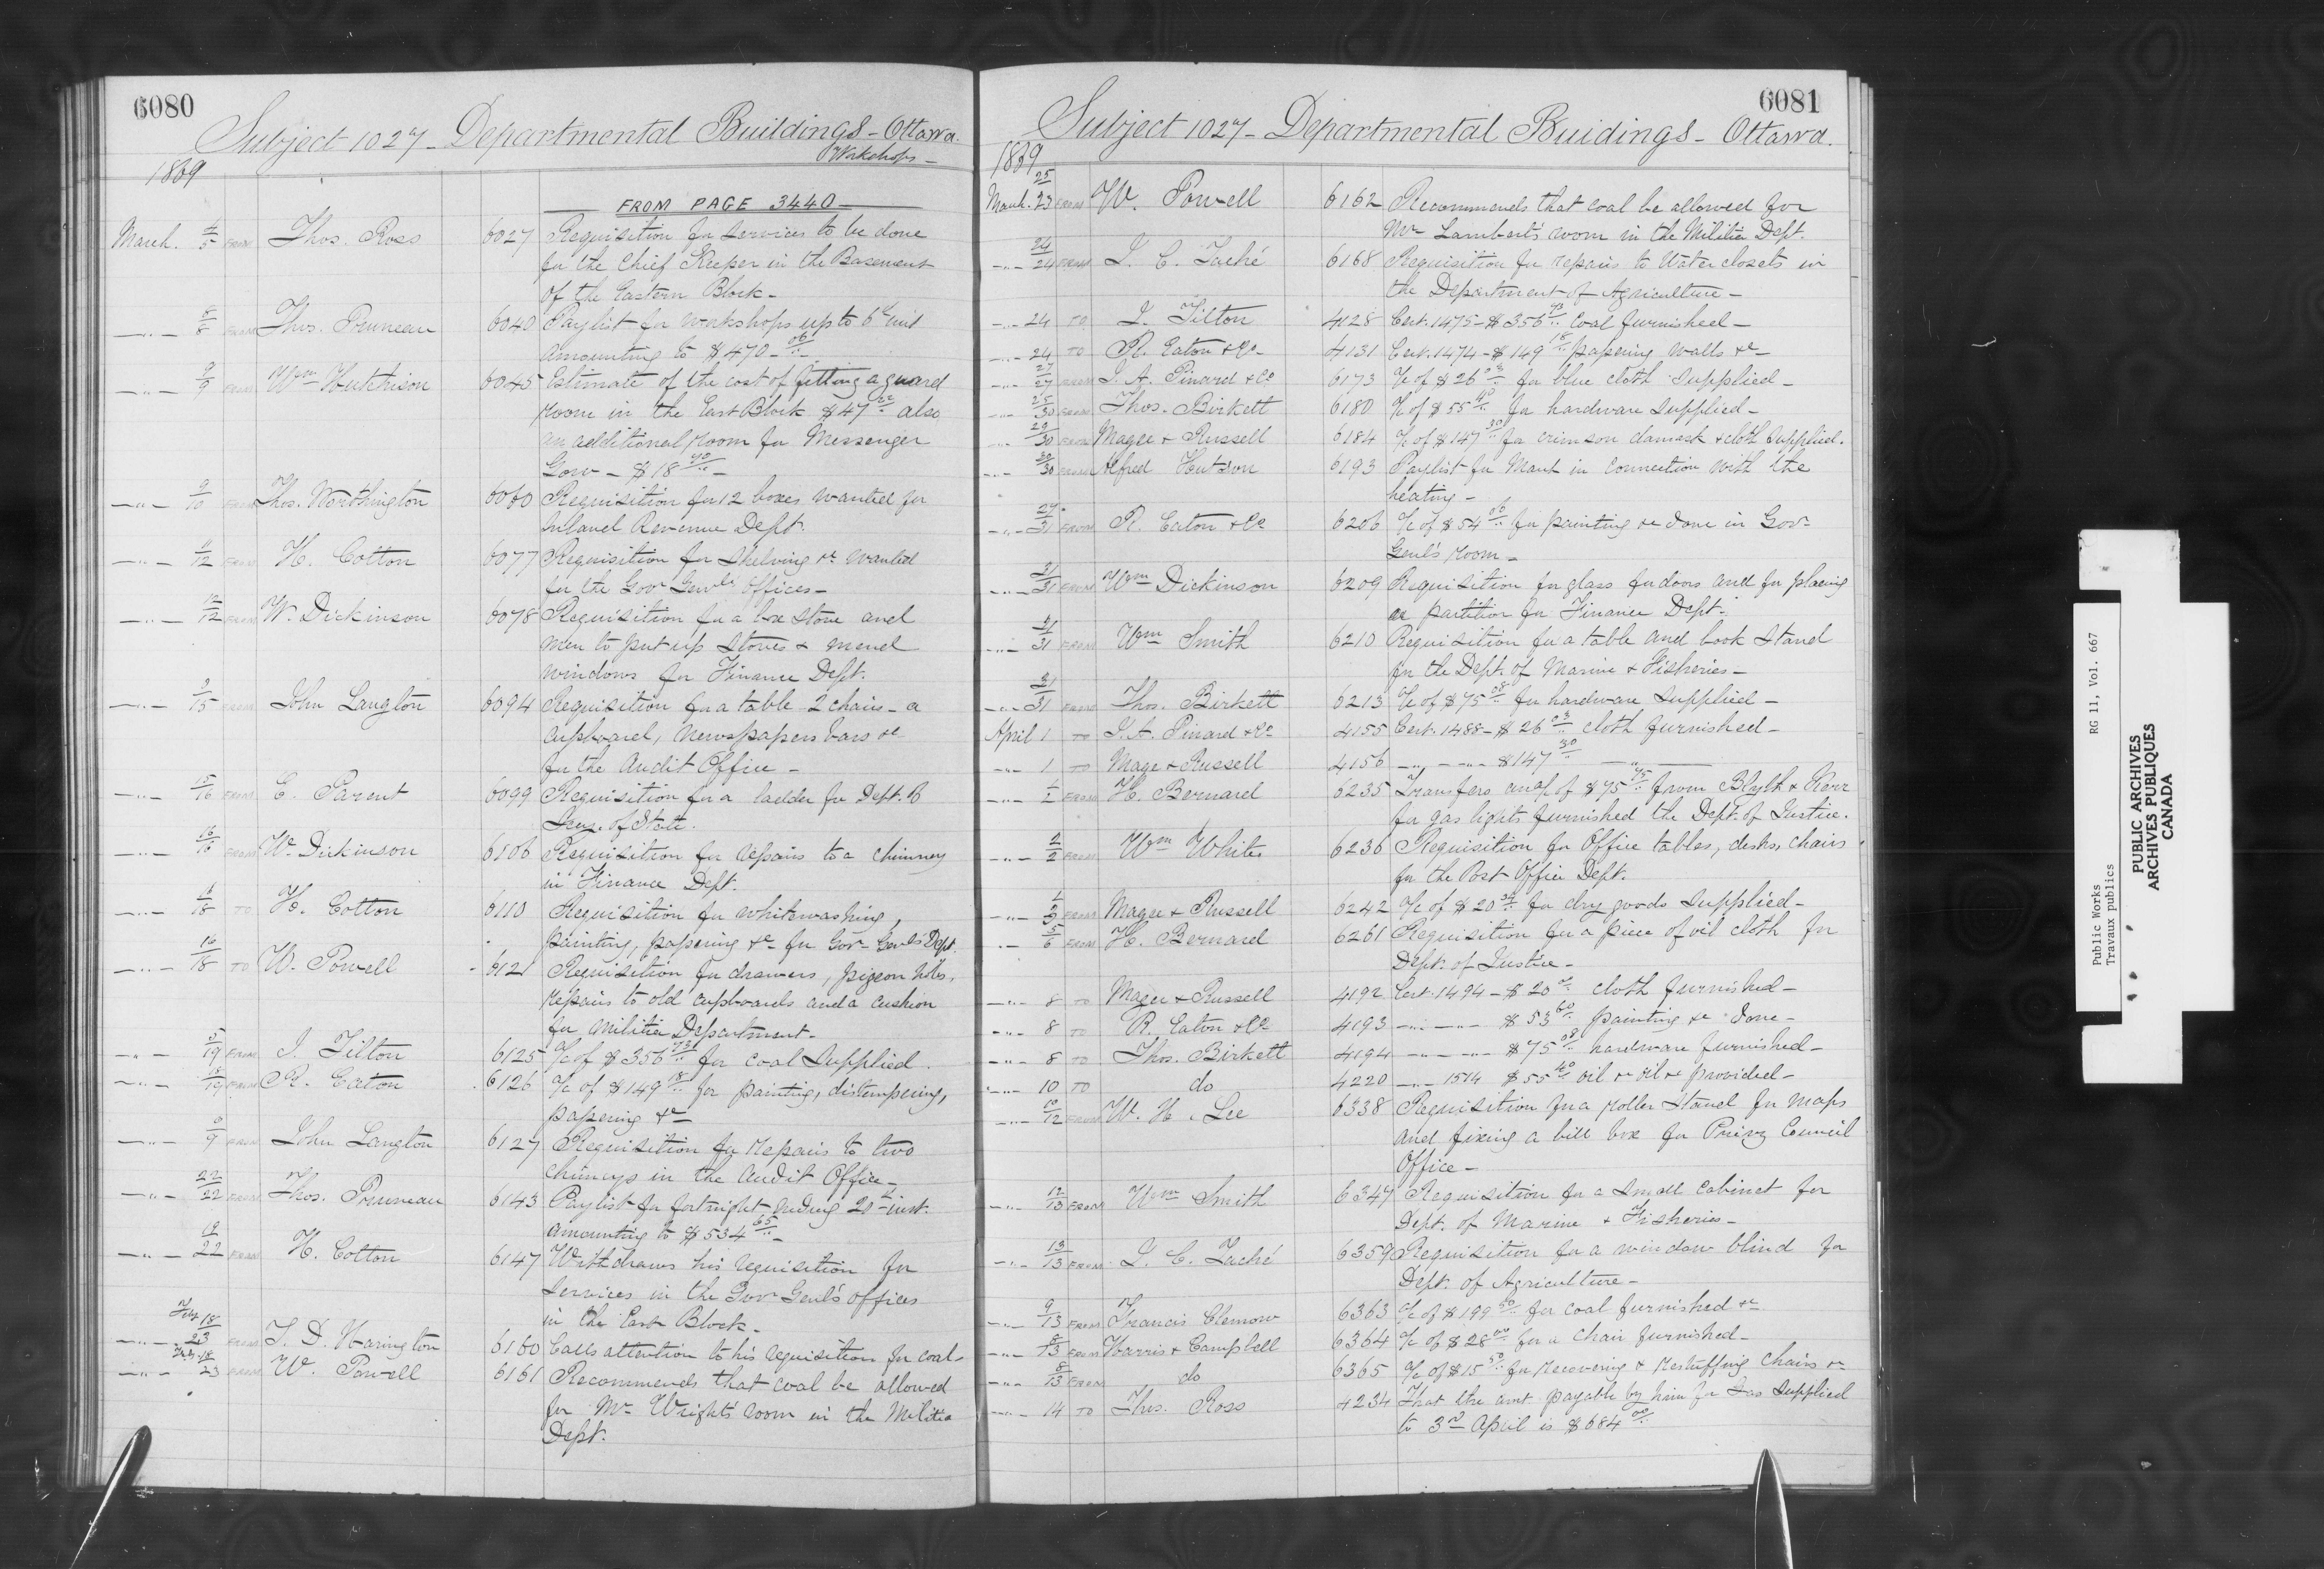 6080
Subject 1027 - Departmental Buildings - Ottawa.
Workshops -
1869
FROM PAGE 3440
March. 4/5 FROM Thos. Ross 6027 Requisition for services to be done
for the Chief Keeper in the Basement
of the Eastern Block -
-"- 8/8 FROM Thos. Pruneau 6040 Paylist for workshops up to 6th inst
amounting to $470 - 06/..
-"- 9/9 FROM Wm Hutchison 6045 Estimate of the cost of fitting a guard
room in the East Block $47 also
an additional room for Messenger
Gow - $18 40/.. -
-"- 9/10 FROM Thos. Worthington 6060 Requisition for 12 boxes wanted for
Inland Revenue Dept.
-"- 11/12 FROM H. Cotton 6077 Requisition for shelving &c wanted
for the Govr Genls Offices -
-"- 12/12 FROM W. Dickinson 6078 Requisition for a box stove and
men to put up stoves & mend
windows for Finance Dept.
-"- 9/15 FROM John Langton 6094 Requisition for a table - 2 chairs - a
cupboard, newspapers bars &c
for the Audit Office -
-"- 15/16 FROM E. Parent 6099 Requisition for a ladder for Dept. of
Secy. of State.
-"- 16/16 FROM W. Dickinson 6106 Requisition for repairs to a chimney
in Finance Dept.
-"- 18 TO H. Cotton 6110 Requisition for whitewashing,
painting, papering &c for Govr Genls Dept.
-"- 16/18 TO W. Powell 6121 Requisition for drawers, pigeon holes,
repairs to old cupboards and a cushion
for Militia Department -
-"- 5/19 FROM J. Tilton 6125 a/c of $356 93/.. for coal supplied.
-"- 18/19 FROM R. Eaton 6126 a/c of $149 18/.. for painting, distempering,
papering &c -
-"- 9 FROM John Langton 6127 Requisition for repairs to two
chimneys in the Audit Office -
-"- 22/22 FROM Thos. Pruneau 6143 Paylist for fortnight ending 20th inst.
amounting to $534 65/.. -
-"- 19/22 FROM H. Cotton 6147 Withdraws his requisition for
services in the Govr Genl's offices
in the East Block -
Feby 18
-"- 23 FROM T. D. Harington 6160 Calls attention to his requisition for coal -
Feby 18
-"- 23 FROM W. Powell 6161 Recommends that coal be allowed
for Mr Wright's room in the Militia
Dept.
6081
Subject 1027 - Departmental Buidings - Ottawa.
1869
March. 25/23 FROM W. Powell 6162 Recommends that coal be allowed for
Mr Lambert's room in the Militia Dept.
-"- 24/24 FROM J. C. Taché 6168 Requisition for repairs to Water closets in
the Department of Agriculture -
-"- 24 TO J. Tilton 4128 Cert. 1475 - $356 93/.. coal furnished -
-"- 24 TO R. Eaton & Co - 4131 Cert. 1474 - $149 18/.. papering walls &c -
-"- 27/27 FROM J. A. Pinard & Co 6173 a/c of $26 03/.. for blue cloth supplied -
-"- 25/30 FROM Thos. Birkett 6180 a/c of $55 40/.. for hardware supplied -
-"- 29/30 FROM Magee & Russell 6184 a/c of $147 30/.. for crimson damask & cloth supplied.
-"- 30/30 FROM Alfred Hutson 6193 Paylist for March in connection with the
heating -
-"- 27/31 FROM R. Eaton & Co 6206 a/c of $54 06/.. for painting &c done in Govr
Genl's room -
-"- 31/31 FROM Wm Dickinson 6209 Requisition for glass for doors and for placing
a partition for Finance Dept.
-"- 31/31 FROM Wm Smith 6210 Requisition for a table and book stand
for the Dept. of Marine & Fisheries -
-"- 31/31 FROM Thos. Birkett 6213 a/c of $75 08/.. for hardware supplied -
April 1 TO J. A. Pinard & Co 4155 Cert. 1488 - $26 03/.. cloth furnished -
-"- 1 TO Mage & Russell 4156 -"- -"- $147 30/.. -"-
-"- 1/1 FROM H. Bernard 6235 Transfers an a/c of $75 75/.. from Blyth & Kerr
for gas lights furnished the Dept. of Justice.
-"- 2/2 FROM Wm White 6236 Requisition for Office tables, desks, chairs
for the Post Office Dept.
-"- 1/3 FROM Magee & Russell 6242 a/c of $20 for dry goods supplied -
-"- 5/6 FROM H. Bernard 6261 Requisition for a piece of oil cloth for
Dept. of Justice -
-"- 8 TO Magee & Russell 4192 Cert. 1494 - $20 cloth furnished -
-"- 8 TO R. Eaton & Co 4193 -"- -"- $53 60/.. painting &c done -
-"- 8 TO Thos. Birkett 4194 -"- -"- $75 08/.. hardware furnished -
-"- 10 TO do 4220 -"- 1514 $55 40/.. oil &c oil &c provided -
-"- 10/12 FROM W. H. Lee 6338 Requisition for a roller stand for maps
and fixing a bill box for Privy Council
Office -
-"- 12/13 FROM Wm Smith 6347 Requisition for a small cabinet for
Dept. of Marine & Fisheries -
-"- 13/13 FROM J. C. Taché 6359 Requisition for a window blind for
Dept. of Agriculture -
-"- 9/13 FROM Francis Clemow 6363 a/c of $199 50/.. for coal furnished &c
-"- 8/13 FROM Harris & Campbell 6364 a/c of $28 00/.. for a chair furnished -
-"- 8/13 FROM do 6365 a/c of $15 50/.. for recovering & restuffing chairs &c
-"- 14 TO Thos. Ross 4234 That the amt. payable by him for Gas supplied
to 3rd April is $684 00/..
Public Works RG 11, Vol. 667
Travaux publics
PUBLIC ARCHIVES
ARCHIVES PUBLIQUES
CANADA